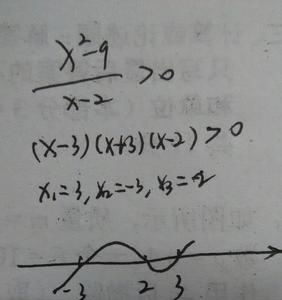 x²-9
x-2 >0
(x-3)(x+3)(x-2)>0
x₁=3, x₂=-3, x₃=2
-3 2 3